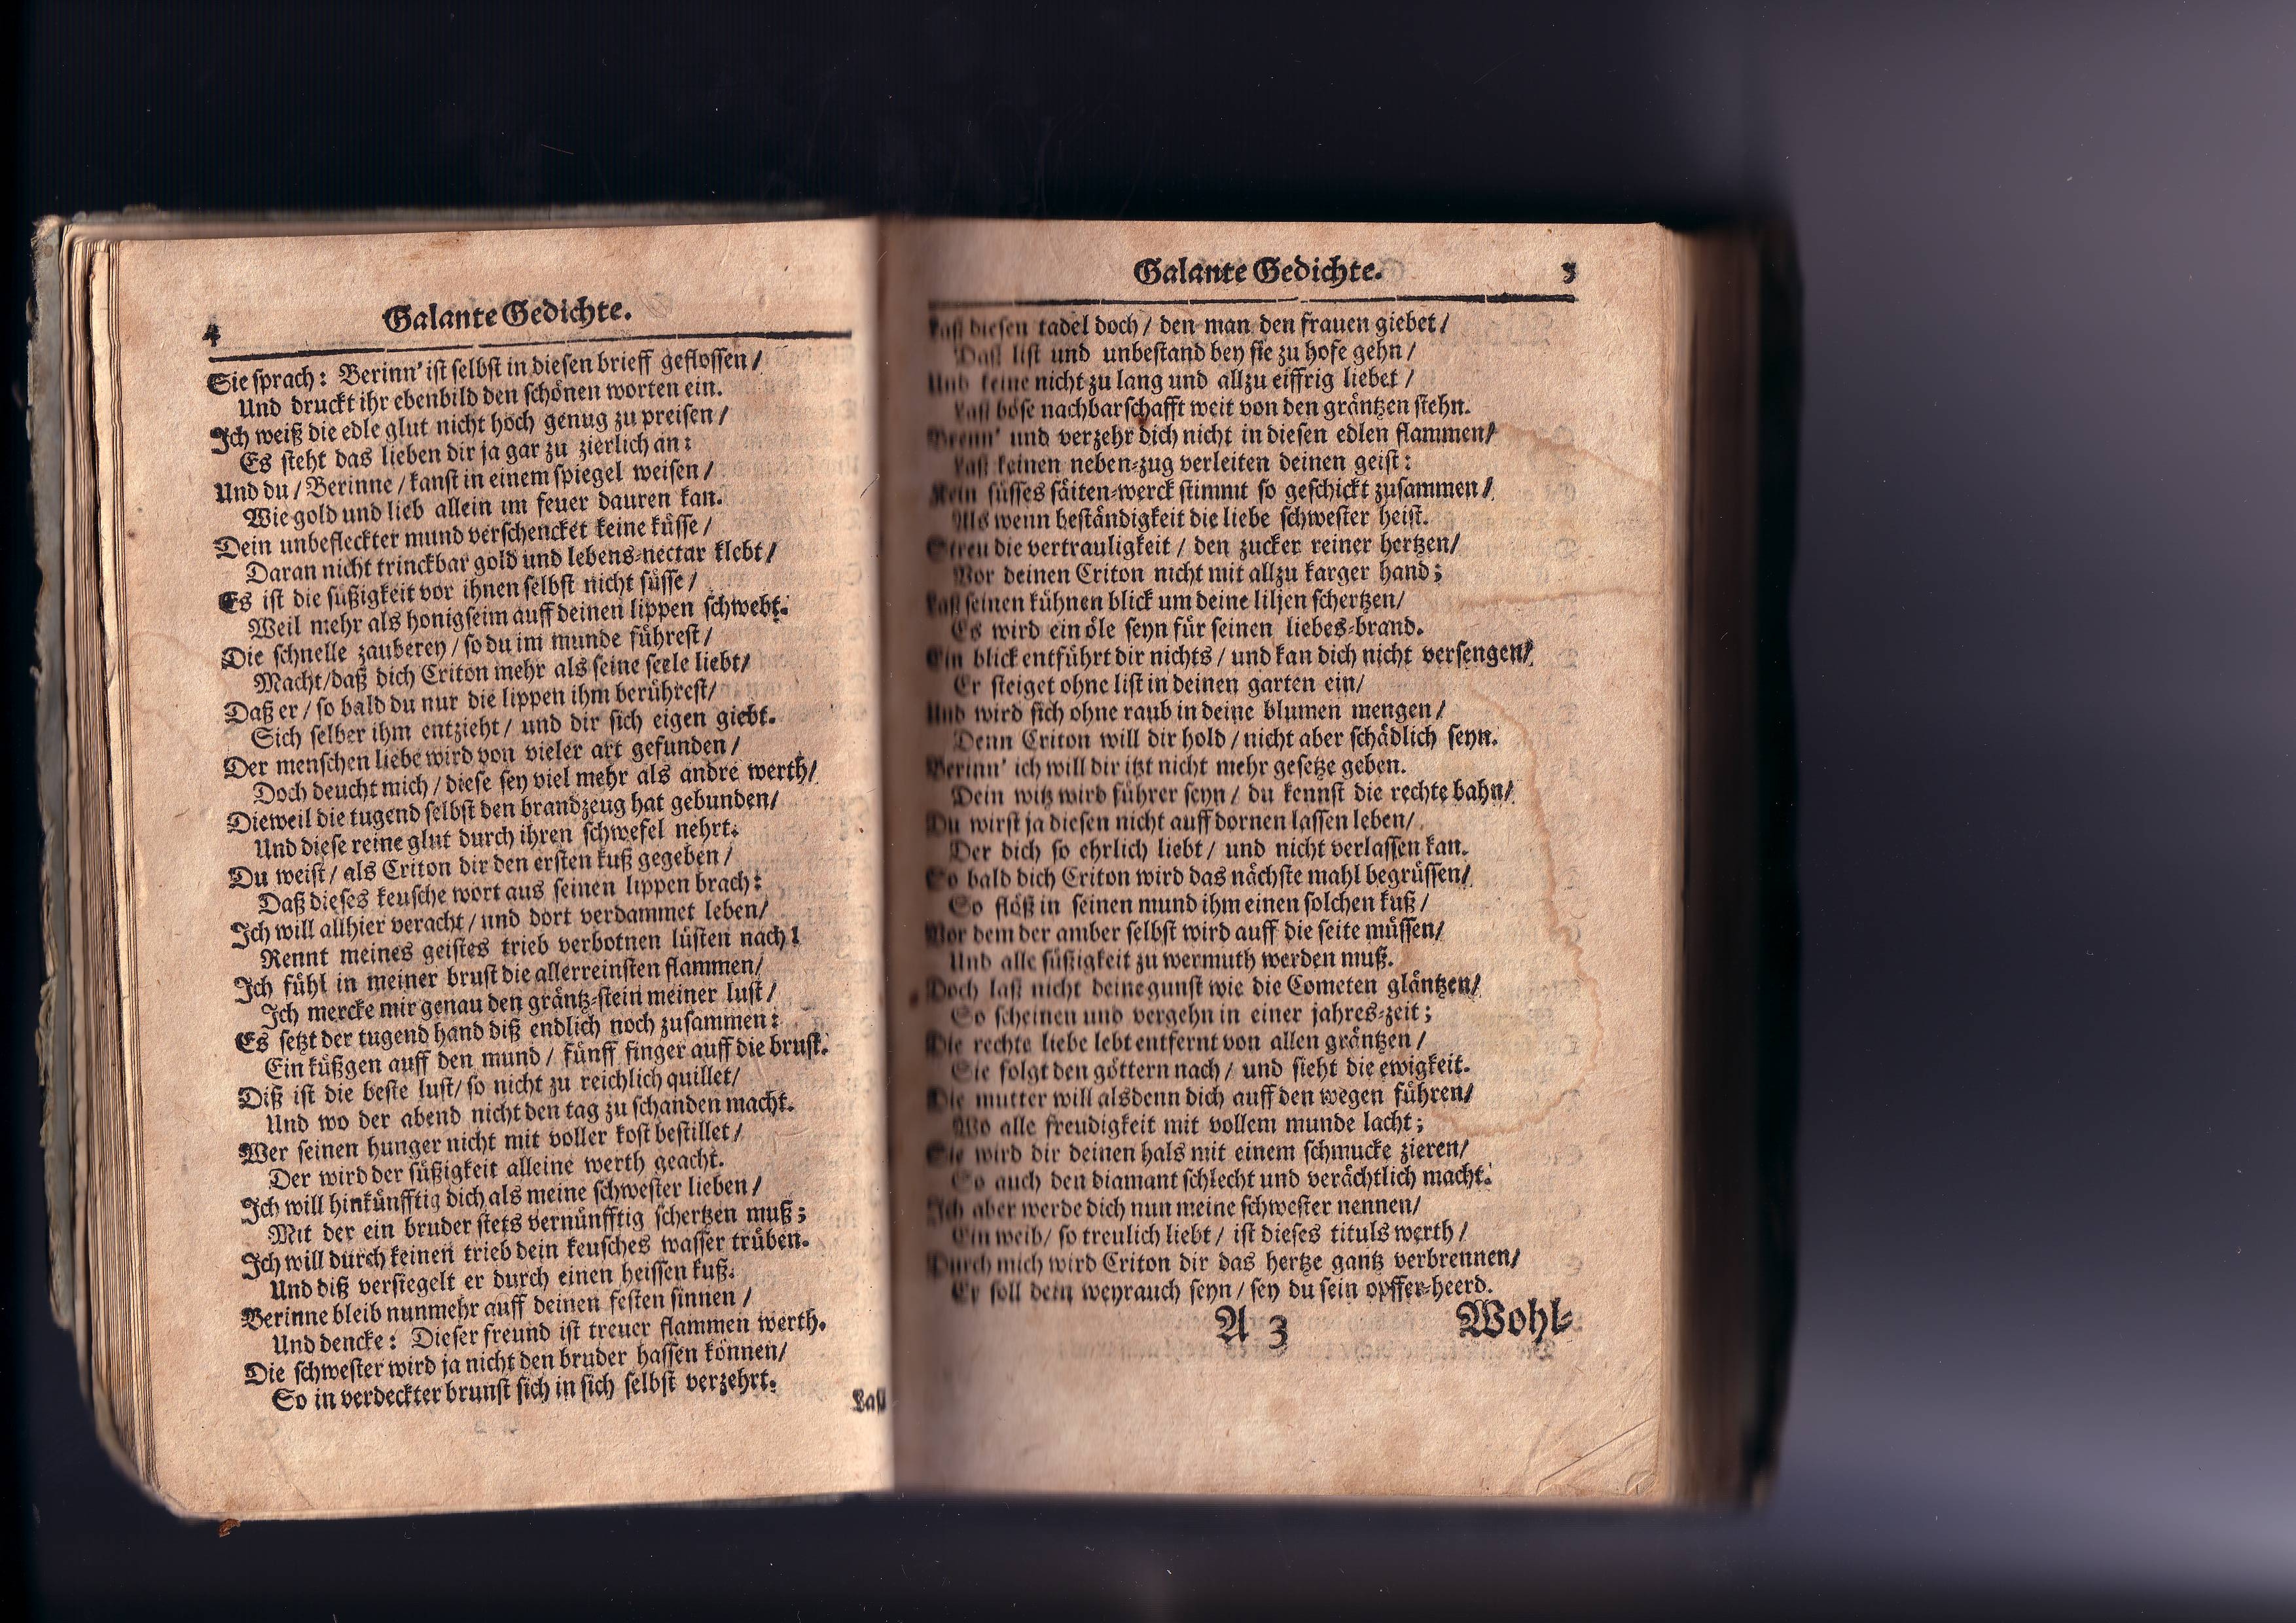 4
Galante Gedichte.
Sie sprach: Berinn' ist selbst in diesen brieff geflossen/
Und druckt ihr ebenbild den schönen worten ein.
Ich weiß die edle glut nicht hoch genug zu preisen/
Es steht das lieben dir ja gar zu zierlich an:
Und du/ Berinne/ kanst in einem spiegel weisen/
Wie gold und lieb allein im feuer dauren kan.
Dein unbefleckter mund verschencket keine küsse/
Daran nicht trinckbar gold und lebens-nectar klebt/
Es ist die süßigkeit vor ihnen selbst nicht süsse/
Weil mehr als honigseim auff deinen lippen schwebt.
Die schnelle zauberey/ so du im munde führest/
Macht/ daß dich Criton mehr als seine seele liebt/
Daß er/ so bald du nur die lippen ihm berührest/
Sich selber ihm entzieht/ und dir sich eigen giebt.
Der menschen liebe wird von vieler art gefunden/
Doch deucht mich/ diese sey viel mehr als andre werth/
Dieweil die tugend selbst den brandzeug hat gebunden/
Und diese reine glut durch ihren schwefel nehrt.
Du weist/ als Criton dir den ersten kuß gegeben/
Daß dieses keusche wort aus seinen lippen brach:
Ich will allhier veracht/ und dort verdammet leben/
Rennt meines geistes trieb verbotnen lüsten nach!
Ich fühl in meiner brust die allerreinsten flammen/
Ich mercke mir genau den gräntz-stein meiner lust/
Es setzt der tugend hand diß endlich noch zusammen:
Ein küßgen auff den mund/ fünff finger auff die brust.
Diß ist die beste lust/ so nicht zu reichlich quillet/
Und wo der abend nicht den tag zu schanden macht.
Wer seinen hunger nicht mit voller kost bestillet/
Der wird der süßigkeit alleine werth geacht.
Ich will hinkünfftig dich als meine schwester lieben/
Mit der ein bruder stets vernünfftig schertzen muß;
Ich will durch keinen trieb dein keusches wasser trüben.
Und diß versiegelt er durch einen heissen kuß.
Berinne bleib nunmehr auff deinen festen sinnen/
Und dencke: Dieser freund ist treuer flammen werth.
Die schwester wird ja nicht den bruder hassen können/
So in verdeckter brunst sich in sich selbst verzehrt.
Laß
Galante Gedichte.
5
Laß diesen tadel doch/ den man den frauen giebet/
Daß list und unbestand bey sie zu hofe gehn/
Und keine nicht zu lang und allzu eiffrig liebet/
Laß böse nachbarschafft weit von den gräntzen stehn.
Brenn' und verzehr dich nicht in diesen edlen flammen/
Laß keinen neben-zug verleiten deinen geist:
Kein süsses säiten-werck stimmt so geschickt zusammen/
Als wenn beständigkeit die liebe schwester heist.
Streu die vertrauligkeit/ den zucker reiner hertzen/
Vor deinen Criton nicht mit allzu karger hand;
Laß seinen kühnen blick um deine liljen schertzen/
Es wird ein öle seyn für seinen liebes-brand.
Ein blick entführt dir nichts/ und kan dich nicht versengen/
Er steiget ohne list in deinen garten ein/
Und wird sich ohne raub in deine blumen mengen/
Denn Criton will dir hold/ nicht aber schädlich seyn.
Berinn' ich will dir itzt nicht mehr gesetze geben.
Dein witz wird führer seyn/ du kennst die rechte bahn/
Du wirst ja diesen nicht auff dornen lassen leben/
Der dich so ehrlich liebt/ und nicht verlassen kan.
So bald dich Criton wird das nächste mahl begrüssen/
So flöß in seinen mund ihm einen solchen kuß/
Vor dem der amber selbst wird auff die seite müssen/
Und alle süßigkeit zu wermuth werden muß.
Doch laß nicht deine gunst wie die Cometen gläntzen/
So scheinen und vergehn in einer jahres-zeit;
Die rechte liebe lebt entfernt von allen gräntzen/
Sie folgt den göttern nach/ und sieht die ewigkeit.
Die mutter will alsdenn dich auff den wegen führen/
Wo alle freudigkeit mit vollem munde lacht;
Sie wird dir deinen hals mit einem schmucke zieren/
So auch den diamant schlecht und verächtlich macht.
Ich aber werde dich nun meine schwester nennen/
Ein weib/ so treulich liebt/ ist dieses tituls werth/
Durch mich wird Criton dir das hertze gantz verbrennen/
Er soll dein weyrauch seyn/ sey du sein opffer-heerd.
A 3
Wohl-